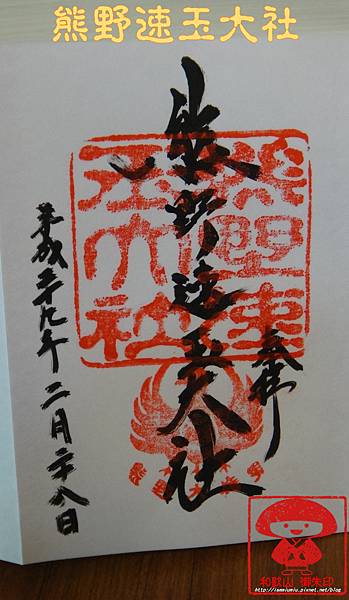 熊野速玉大社
奉拝
熊野速玉大社
熊野速
玉大社
平成二十九年二月二十八日
和歌山 御朱印
http://iammiumiu.pixnet.net/blog